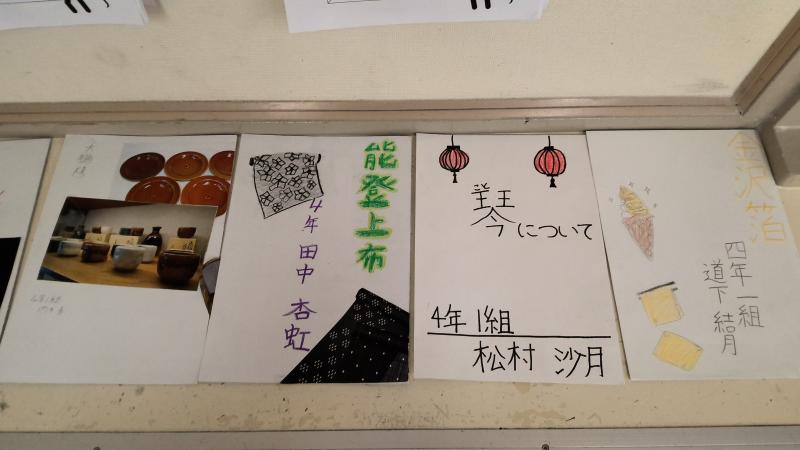 大樋焼
4年1組
能登上布
4年 田中 杏虹
琴について
4年 1組
松村 沙月
金沢箔
四年一組
道下 結月